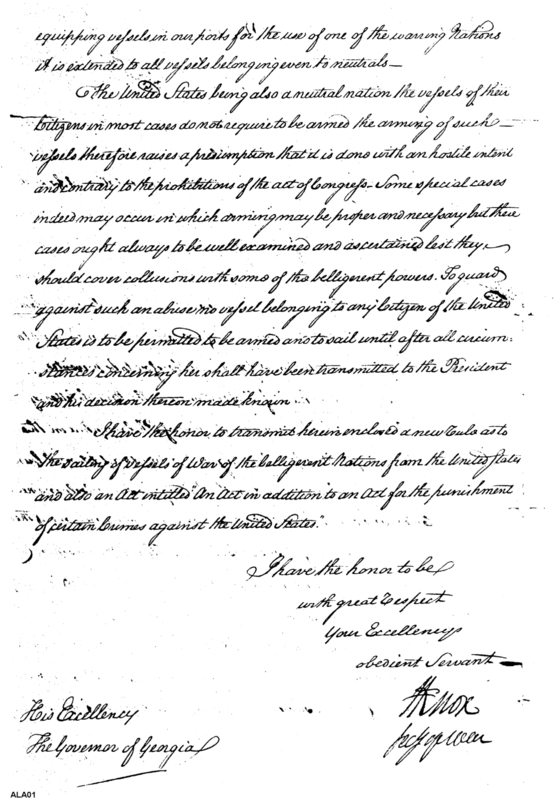 equipping vessels in our ports for the use of one of the warring Nations
it is extended to all vessels belonging even to neutrals —
The United States being also a neutral nation the vessels of their
Citizens in most cases do not require to be armed the arming of such —
vessels therefore raises a presumption that it is done with an hostile intent
and contrary to the prohibitions of the act of Congress – Some special cases
indeed may occur in which arming may be proper and necessary but these
cases ought always to be well examined and ascertained lest they
should cover collusions with some of the belligerent powers. To guard
against such an abuse no vessel belonging to any Citizen of the United
States is to be permitted to be armed and to sail until after all circum-
stances concerning her shall have been transmitted to the President
and his decision thereon made known.
I have the honor to transmit herein enclosed a new rule as to
the sailing of vessels of War of the belligerent Nations from the United States
and also an Act intitled "An Act in addition to an Act for the punishment
of certain Crimes against the United States."
I have the honor to be
with great respect
Your Excellencys
obedient Servant —
H Knox
Secy of War
His Excellency
The Governor of Georgia
ALA01